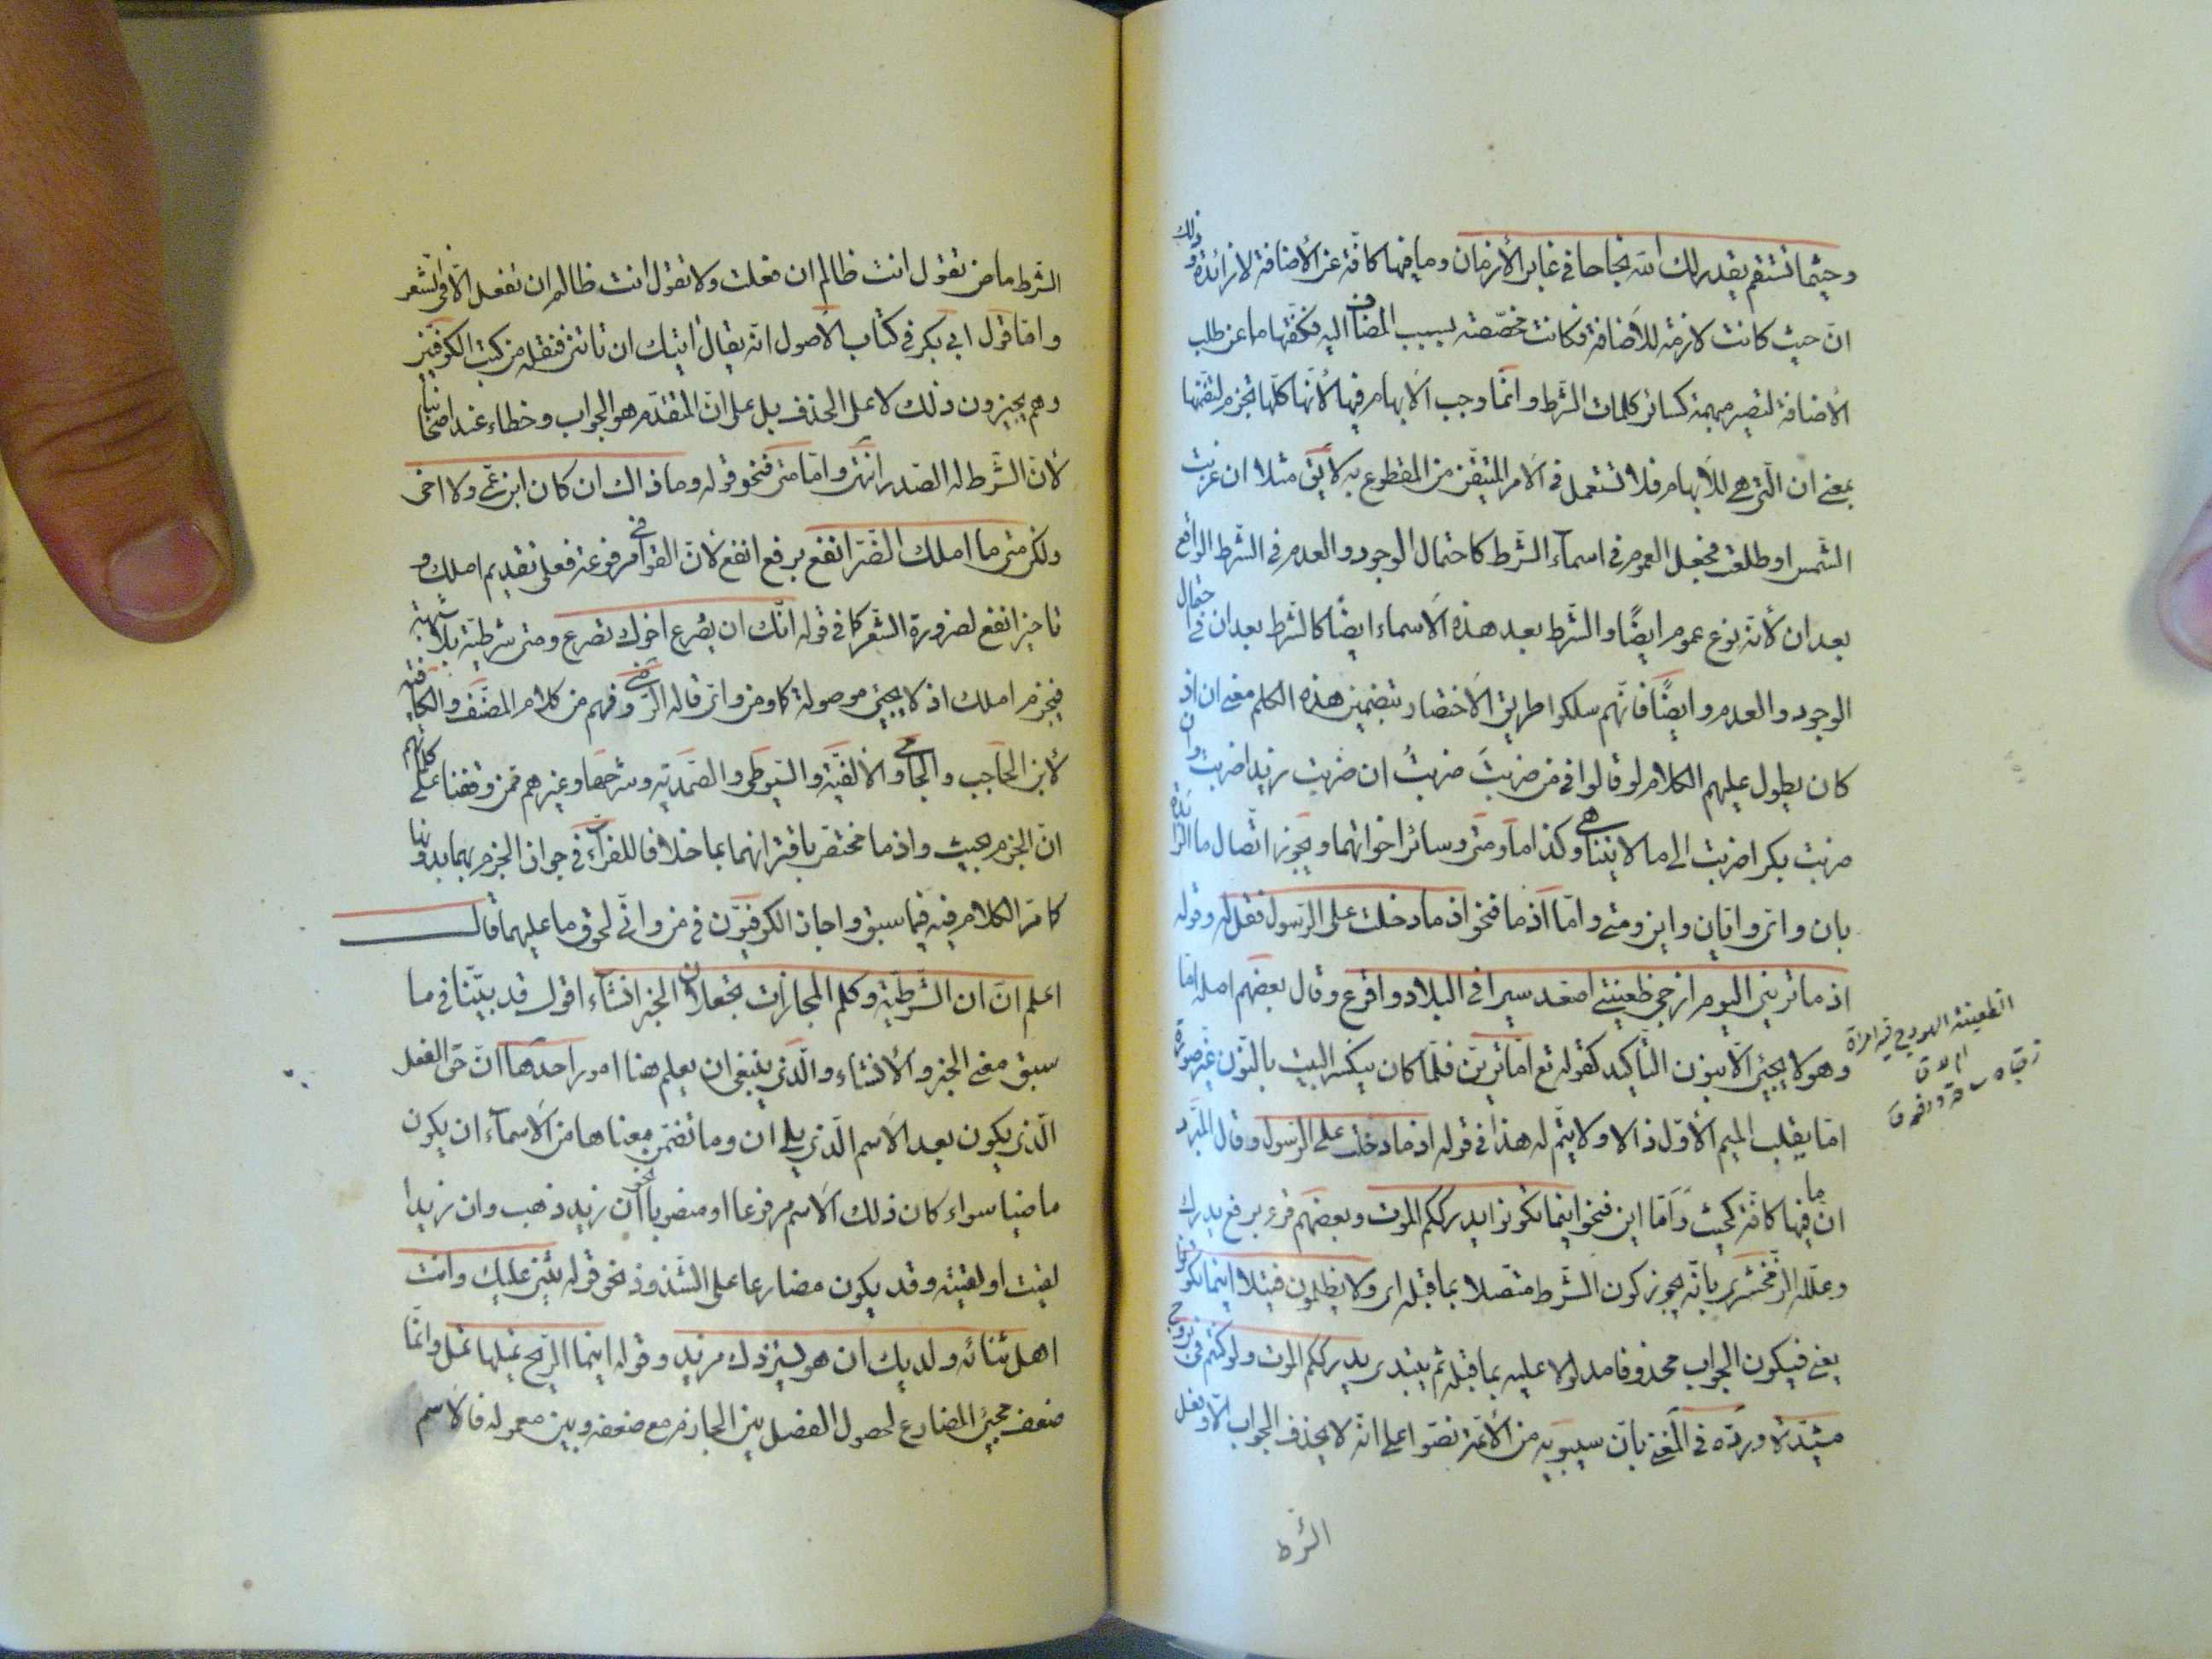 وحيثما تستقم يقدر لك الله نجاحا في غابر الأزمان وما فيها كافّة عن الأضافة لا زائدة وذلك
انّ حيث كانت لازمة للأضافة فكانت مخصّصة بسبب المضاف اليه فكفّتها ما عن طلب
الأضافة لتصير مبهمة كسائر كلمات الشّرط وانّما وجب الأبهام فيها لأنّها كلّها تجزم لتضمّنها
بمعنى ان الّتي هي للأبهام فلا تستعمل في الأمر المتيقّن المقطوع به لا يقى مثلا ان غربت
الشّمس او طلعت فجعل العموم في اسمآء الشّرط كاحتمال الوجود والعدم في الشّرط الواقع
بعد ان لأنّه نوع عموم ايضًا والشّرط بعد هذه الأسماء ايضًا كالشّرط بعد ان في احتمال
الوجود والعدم وايضًا فانّهم سلكوا طريق الأختصار بتضمين هذه الكلم معنى ان اذ
كان يطول عليهم الكلام لو قالوا في من ضربتَ ضربتُ ان ضربت زيدا ضربت وان
ضربت بكرا ضربت الى ما لا يتناهى وكذا ما ومتى وسائر اخواتهما ويجوز اتّصال ما الزائدة
بان واىّ وايّان واين ومتى وامّا اذ ما فنحو اذ ما دخلت على الرّسول فقل له وقوله
اذ ما تريني اليوم ازجي ظعينتي اصعد سيرا في البلاد وافرع وقال بعضهم اصله امّا
وهو لا يجيئ الّا بنون التّأكيد كقوله تع امّا ترينّ فلمّا كان ينكسر البيت بالنّون غيّر صورة
امّا بقلب الميم الأوّل ذالا ولا يتمّ له هذا في قوله اذ ما دخلت على الرّسول وقال المبرّد
انّ ما فيها كافّة كحيث وَامّا اين فنحو اينما تكونوا يدرككم الموت وبعضهم قرء برفع يدرك
وعلّله الزّمخشري بانّه يجوز كون الشّرط متّصلا بما قبله اى ولا يظلمون فتيلا اينما تكونوا
يعني فيكون الجواب محذوفا مدلولا عليه بما قبله ثم يبتدى يدرككم الموت ولو كنتم في بروج
مشيّدة وردّه في المغني بانّ سيبويه من الأئمّة نصّوا على انّه لا يحذف الجواب الّا وفعل
الشّرط
الظعينة الهودج فيه امراة
ام لا ق
الشّرط ماض تقول انت ظالم ان فعلت ولا تقول انت ظالم ان تفعل الّا في الشّعر
وامّا قول ابي بكر في كتاب الأصول انّه يقال أتيتك ان تاتني فنقله من كتب الكوفيّين
وهم يجيزون ذلك لا على الحذف بل على انّ المتقدّم هو الجواب وخطاء عند اصحابنا
لأنّ الشّرط له الصّدر انتهى وامّا متى فنحو قوله وما ذاك ان كان ابن عمّي ولا اخي
ولكن متى ما املك الضّرّ انفع برفع انفع لأنّ القوافي مرفوعة فعلى تقديم املك و
تاخير انفع لضرورة الشّعر كما في قوله انّك ان يُصرع اخوك تصرع ومتى شرطيّة بلا شبهة
فيجزم املك اذ لا يجيئ موصولة كما ومن واىّ قاله الرّضي وفهم من كلام المصّنف والكافية
لأبن الحاجب والجامي والالفيّة والسّيوطي والصّمديّه وشرحها وغيرهم ممّن وقفنا على كلامهم
انّ الجزم بحيث واذ ما مختصّ باقترانهما بما خلافا للفرّآء في جواز الجزم بهما بدونها
كما مرّ الكلام فيه فيما سبق واجاز الكوفيّون في من وانّى لحوق ما عليهما قال
اعلم انّ ان الشّرطيّة وكلم المجازات تجعلان الخبر انشاء اقول قد بيّنّا في ما
سبق معنى الخبر والأنشاء والّذي ينبغي ان يعلم هنا امور احدها انّ حق الفعل
الّذي يكون بعد الأسم الّذي يلي ان وما تضمّن معناها من الأسمآء ان يكون
ماضيا سواء كان ذلك الأسم مرفوعا او منصوبا نحو ان زيد ذهب وان زيدا
لقيت او لقيته وقد يكون مضارعا على الشّذوذ نحو قوله يثني عليك وانت
اهل ثنائه ولديك ان هو يستزدك مزيد وقوله اينما الرّيح تميلها تمل وانّما
ضعف مجيئ المضارع لحصول الفصل بين الجازم مع ضعفه وبين معموله فالأسم